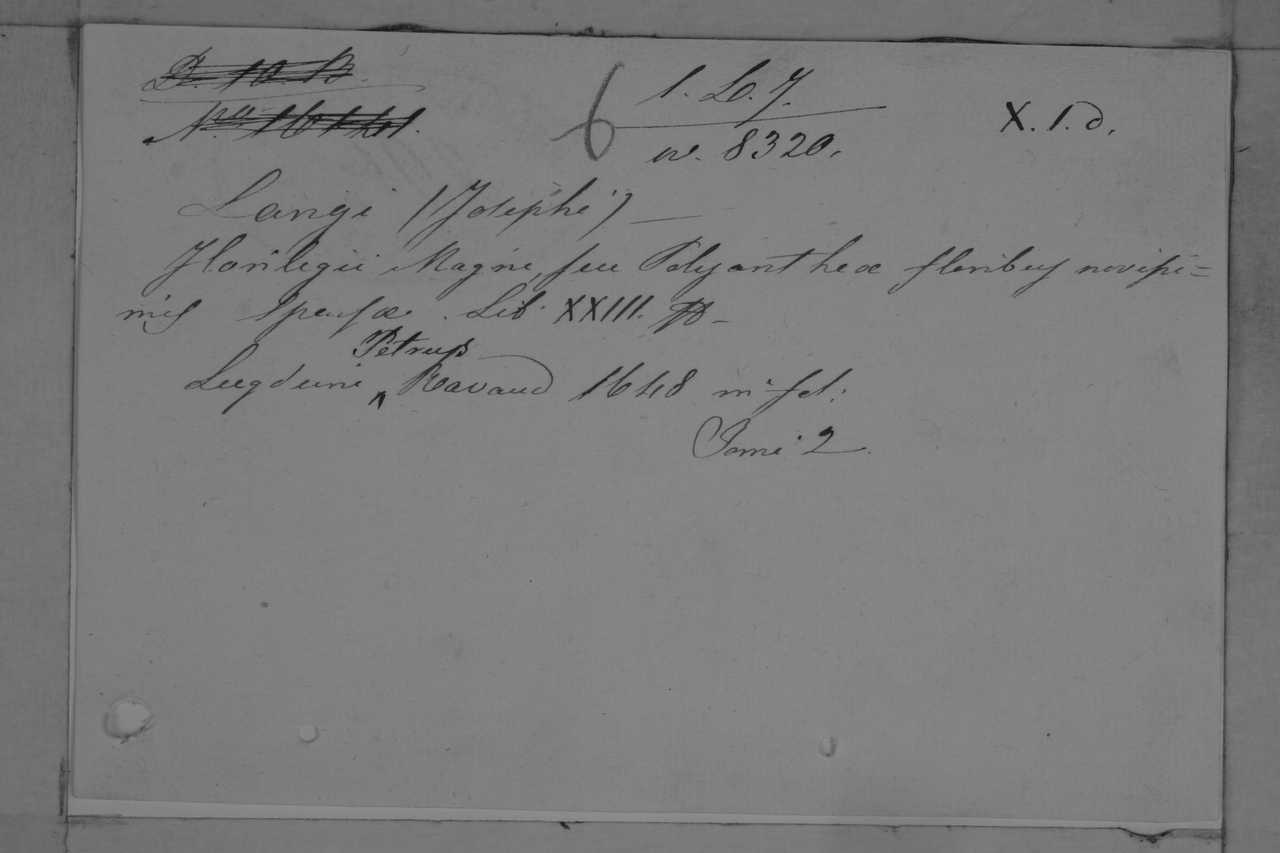 6 1. L. 7. X. 1. d.
w. 8320.
Langi (Josephi) —
Florilegii Magni, seu Polyantheæ floribus novissi=
mis sparsæ. Lib. XXIII.
Petrus
Lugduni ^ Ravaud 1648 in fol:
Tomi 2